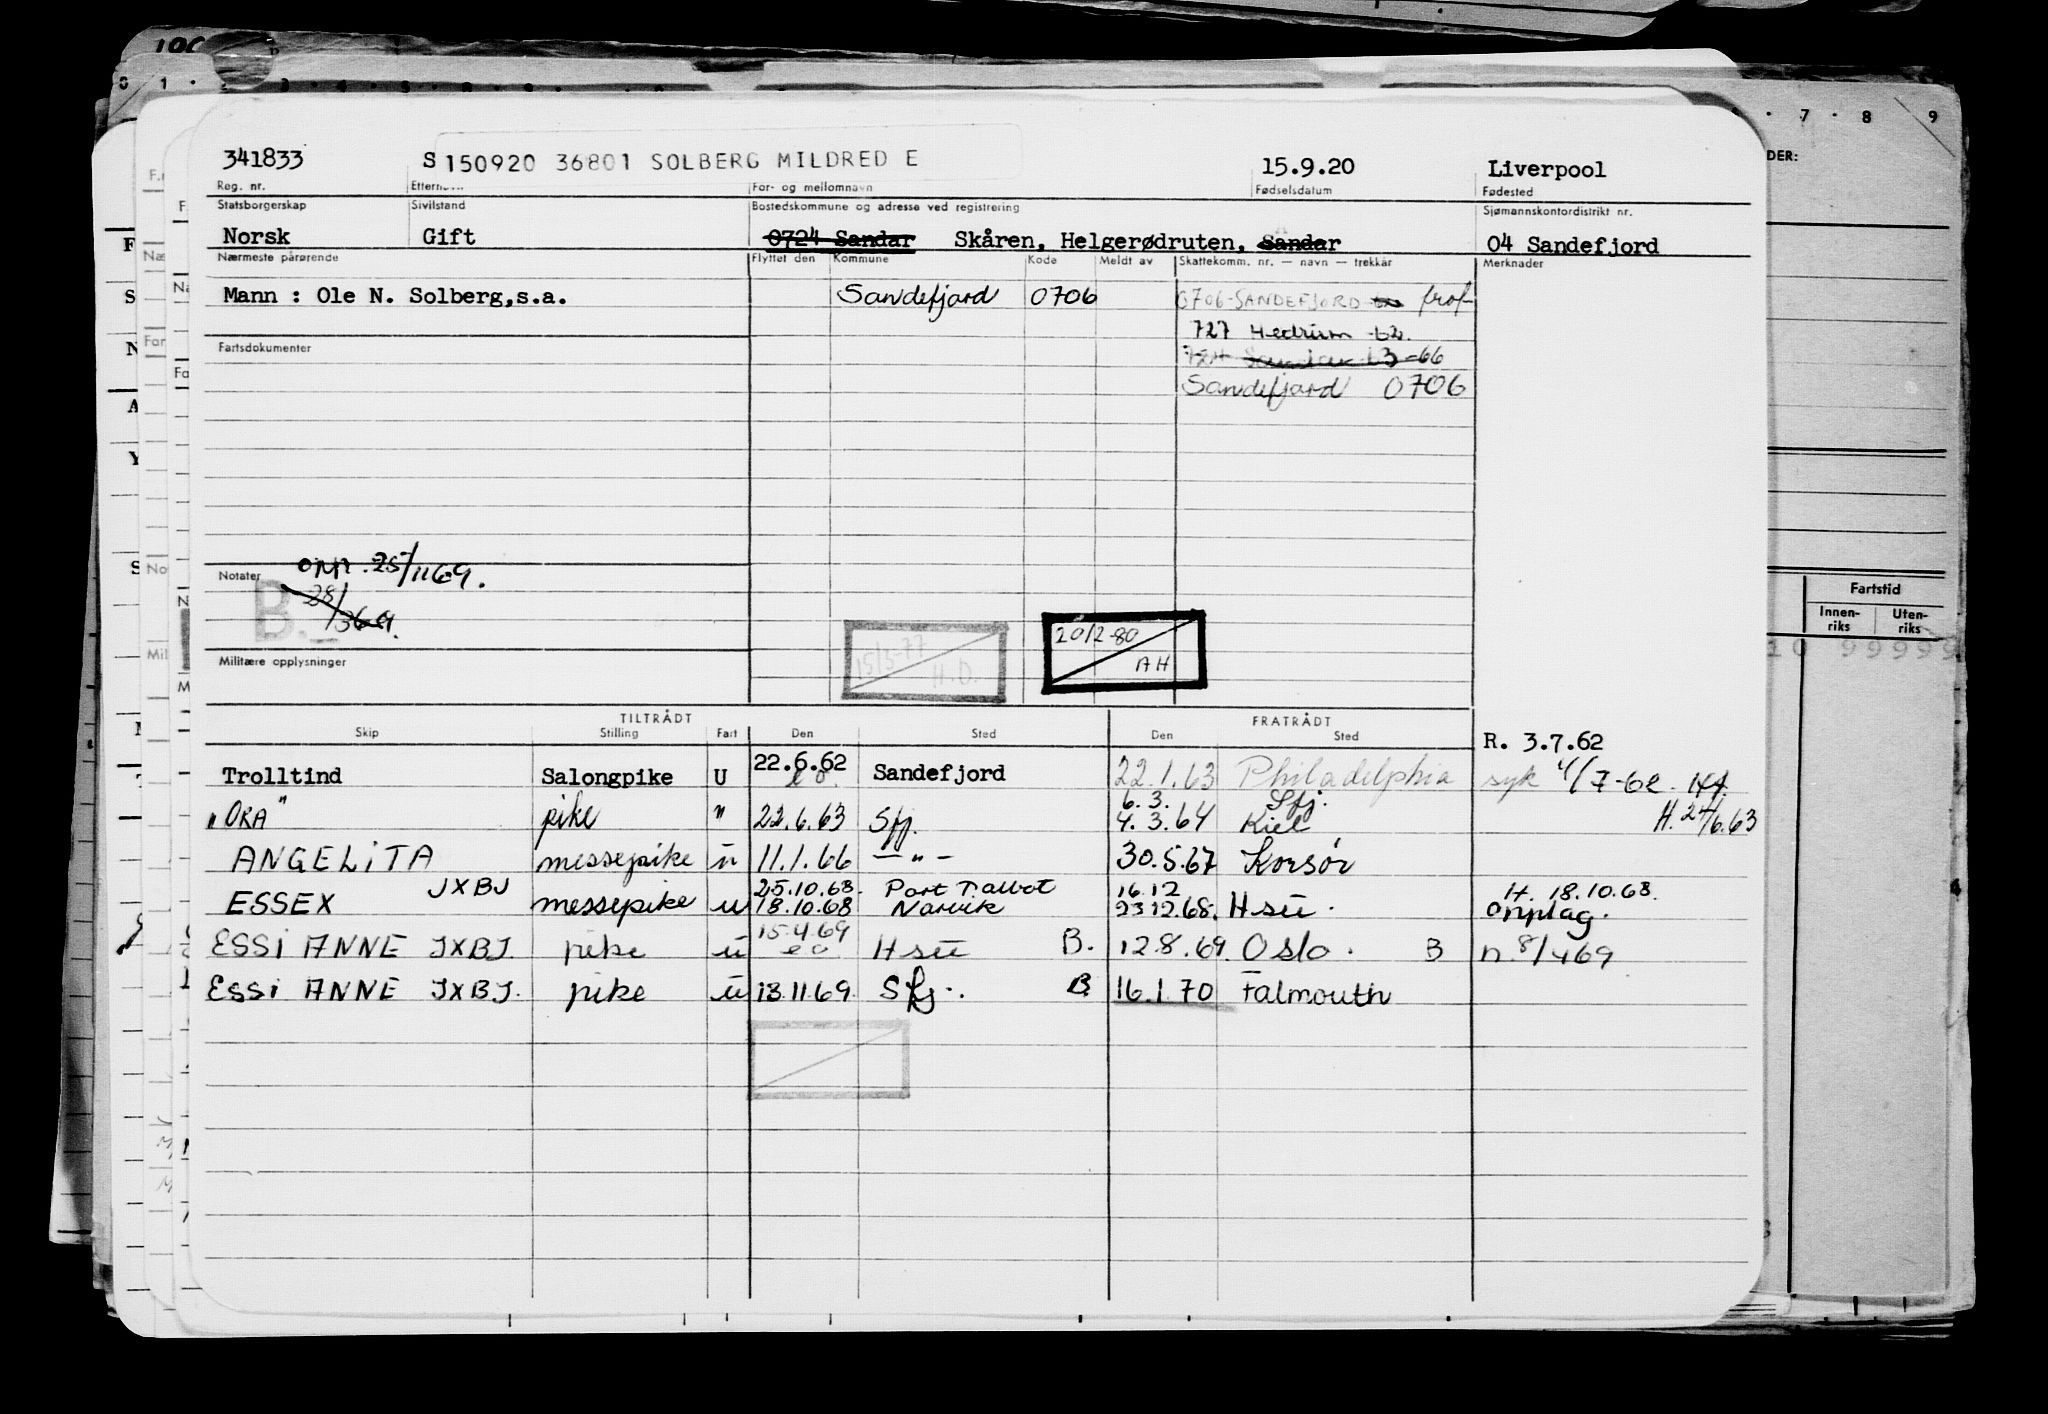 341833 S 150920 36801 SOLBERG MILDRED E 15.9.20 Liverpool
Reg. nr. Etternavn For- og mellomnavn Fødselsdatum Fødested
Statsborgerskap Sivilstand Bostedskommune og adresse ved registrering Sjømannskontordistrikt nr.
Norsk Gift 0724 Sandar Skåren, Helgerødruten, Sandar 04 Sandefjord
Nærmeste pårørende Flyttet den Kommune Kode Meldt av Skattekomm. nr. — navn — trekkår Merknader
Mann : Ole N. Solberg,s.a. Sandefjord 0706 0706-SANDEFJORD
727 Hedrum 62.
-66
Fartsdokumenter
Sandefjord 0706
Notater 25/1169.
B. 28/369.
20/2-80
AH
15/3-77
H.O.
Militære opplysninger
TILTRÅDT FRATRÅDT
Skip Stilling Fart Den Sted Den Sted
R. 3.7.62
Trolltind Salongpike U 22.6.62 Sandefjord 22.1.63 Philadelphia syk 4/7-62.
6.3. Sfj.
"ORA" pike " 22.6.63 Sfj. 4.3.64 Kiel H. 24/6.63
ANGELITA messepike u 11.1.66 — " — 30.5.67 Korsør
JXBJ 25.10.68. Port Talbot 16.12 H. 18.10.68.
ESSEX messepike u 18.10.68 Narvik 23.12.68. Hsu. opplag.
15.4.69
ESSI ANNE JXBJ. pike u Hsu B. 12.8.69. Oslo. B n. 8/469
ESSI ANNE JXBJ. pike u 13.11.69. Sfj. B 16.1.70 Falmouth
DER:
7 8 9
Fartstid
Innen-
riks
Uten-
riks
10 99999